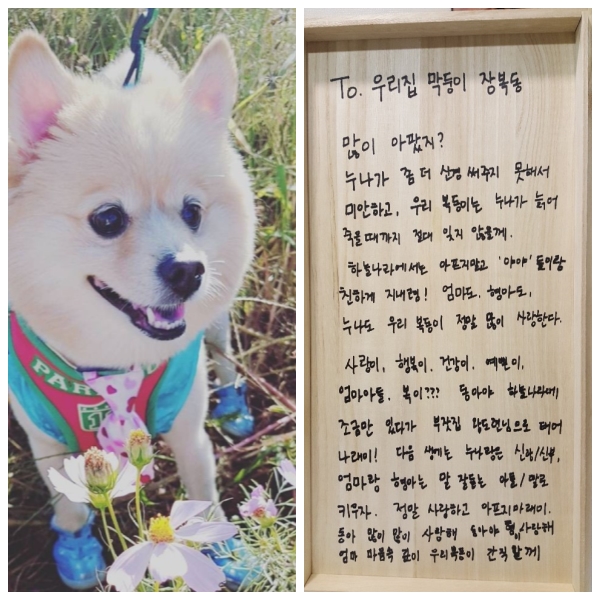 PAR
To. 우리집 막둥이 장복동
많이 아팠지?
누나가 좀 더 신경 써주지 못해서
미안하고, 우리 복동이는 누나가 늙어
죽을때까지 절대 잊지 않을게.
하늘나라에서는 아프지말고 '야야' 둘이랑
친하게 지내렴! 엄마도, 형아도,
누나도 우리 복동이 정말 많이 사랑한다.
사랑이, 행복이, 건강이, 예쁜이,
엄마아들, 복이??? 동아야 하늘나라에
조금만 있다가 부잣집 왕도련님으로 태어
나래이! 다음 생에는 누나랑은 신랑/신부,
엄마랑 형아는 말 잘듣는 아들/딸로
키우자. 정말 사랑하고 아프지마래이.
동아 많이 많이 사랑해 동아야 사랑해
엄마 마음속 깊이 우리복동이 간직할께